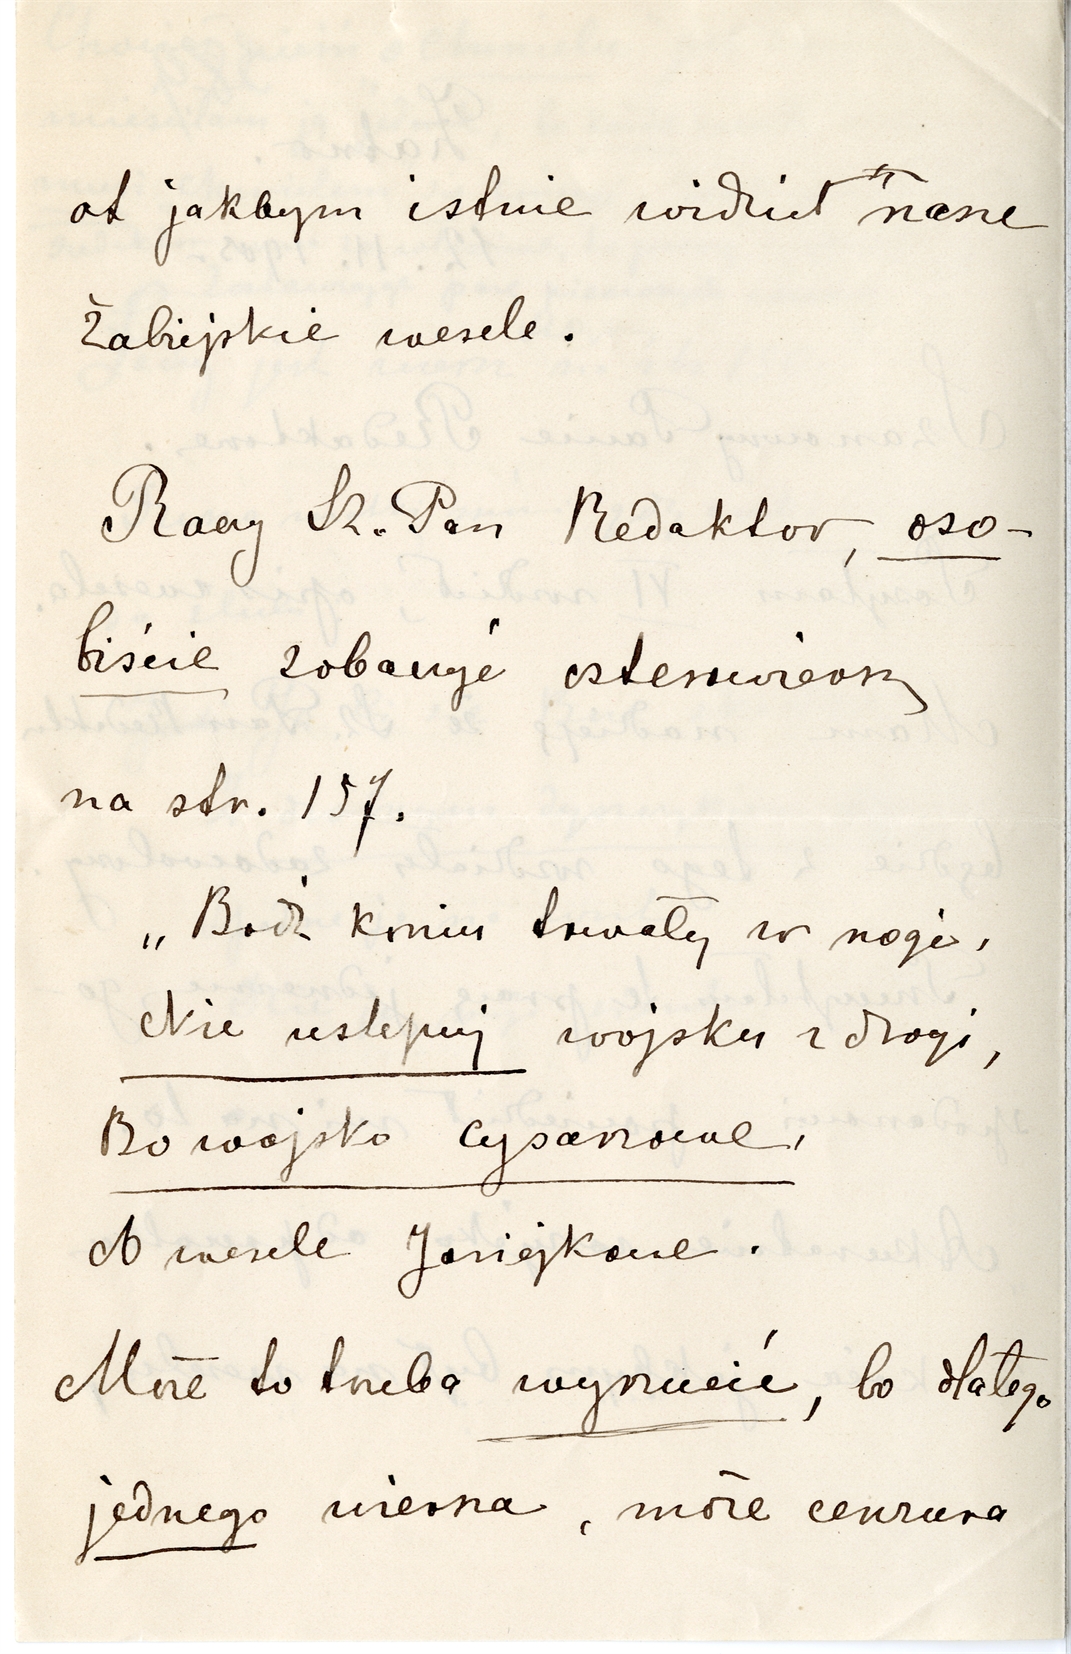 ot jakbym istnie widział nasze
żabiejskie wesele.
Raczy Sz. Pan Redaktor, oso-
biście zobaczyć czterowiersz
na str. 157.
„Bądź koniu trwały w nogi,
Nie ustępuj wojsku z drogi,
Bo wojsko cysarzowe,
A wesele Jasiejkowe.
Może to trzeba wyrzucić, bo dlatego
jednego wiersza, może cenzura